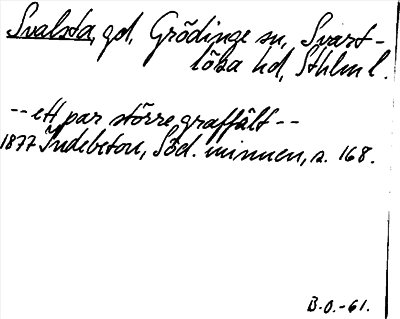 Svalsta, gd, Grödinge sn, Svart-
lösa hd, Sthlm l.
-- ett par större graffält --
1877 Indebetou, Söd. minnen, s. 168.
B.O.-61.